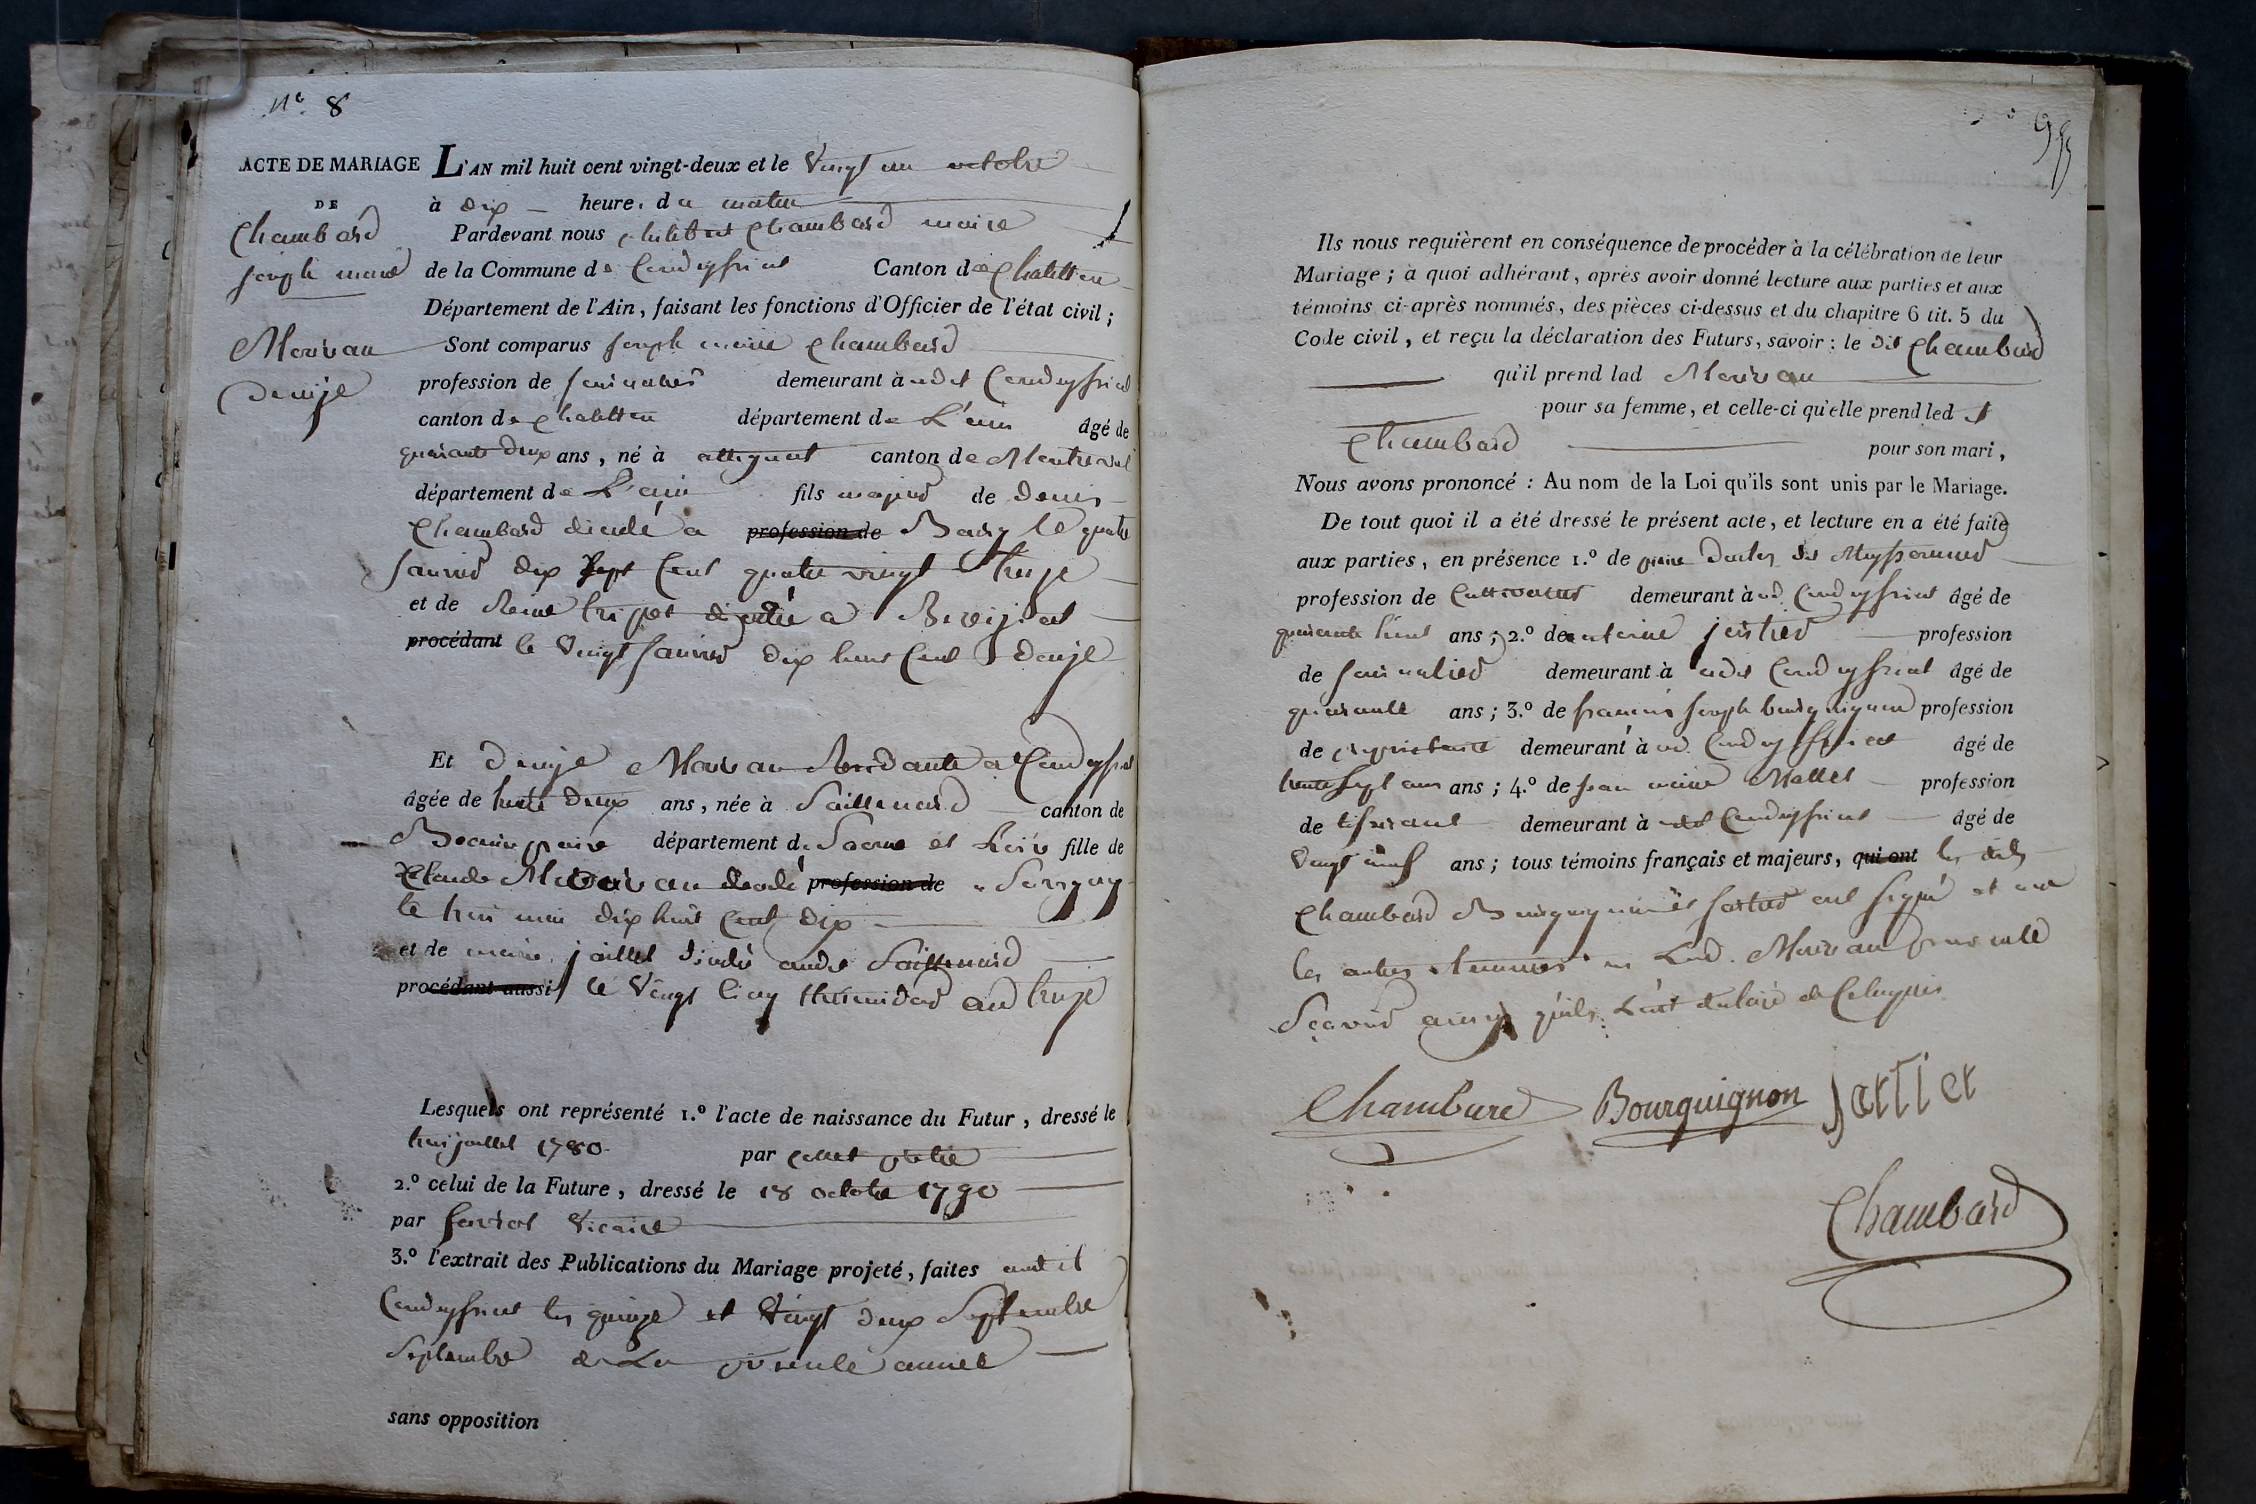 N.º 8
ACTE DE MARIAGE
DE
Chambard
joseph marie
Morivan
Denize
L'AN mil huit cent vingt-deux et le Vingt un octobre
à dix heure. du matin
Pardevant nous philibert Chambard maire
de la Commune de Condeyssiat Canton de Chatillon
Département de l'Ain, faisant les fonctions d'Officier de l'état civil;
Sont comparus joseph marie Chambard
profession de journalier demeurant à udit Condeyssiat
canton de Chatillon département de L'ain âgé de
quarante deux ans, né à attignat canton de Montrevel
département de L'ain fils majeur de denis
Chambard décédé a profession de Bourg le quatre
janvier dix sept Cent quatre vingt treize
et de Reine tripoz décédée a
procédant le Vingt janvier dix huit Cent douze
Et denize Morivan Residante a Condeyssiat
âgée de trente deux ans, née à Saillenard canton de
Beaurepaire département de Saone et Loire fille de
Claude Morivan décédé profession de a Savigny
le trois mai dix huit Cent dix
et de marie jaillet décédée audit Saillenard
procédant aussi le Vingt Cinq thermidor an treize
Lesquels ont représenté 1.º l'acte de naissance du Futur, dressé le
trois juillet 1780 par
2.º celui de la Future, dressé le 18 octobre 1790
par Vicaire
3.º l'extrait des Publications du Mariage projeté, faites audit
Condeyssiat les quinze et Vingt deux Septembre
Septembre de La présente année
sans opposition
Ils nous requièrent en conséquence de procéder à la célébration de leur
Mariage; à quoi adhérant, après avoir donné lecture aux parties et aux
témoins ci-après nommés, des pièces ci-dessus et du chapitre 6 tit. 5 du
Code civil, et reçu la déclaration des Futurs, savoir: le dit Chambard
qu'il prend lad Morivan
pour sa femme, et celle-ci qu'elle prend led t
Chambard pour son mari,
Nous avons prononcé: Au nom de la Loi qu'ils sont unis par le Mariage.
De tout quoi il a été dressé le présent acte, et lecture en a été faite
aux parties, en présence 1.º de pierre
profession de Cultivateur demeurant à ud Condeyssiat âgé de
quarante huit ans; 2.º de antoine jartier profession
de journalier demeurant à udit Condeyssiat âgé de
quarante ans; 3.º de francois joseph bourguignon profession
de propriétaire demeurant à ud. Condeyssiat âgé de
trente sept ans ans; 4.º de jean marie Mallet profession
de tisserant demeurant à udit Condeyssiat âgé de
Vingt neuf ans; tous témoins français et majeurs, qui ont les dits
Chambard Bourguignon et jartier ont signé et non
les autres temoins ni Lad. Morivan pour ne le
Scavoir ainsy qu'ils L'ont déclaré de Ce requis
Chambard Bourguignon Jartier
Chambard